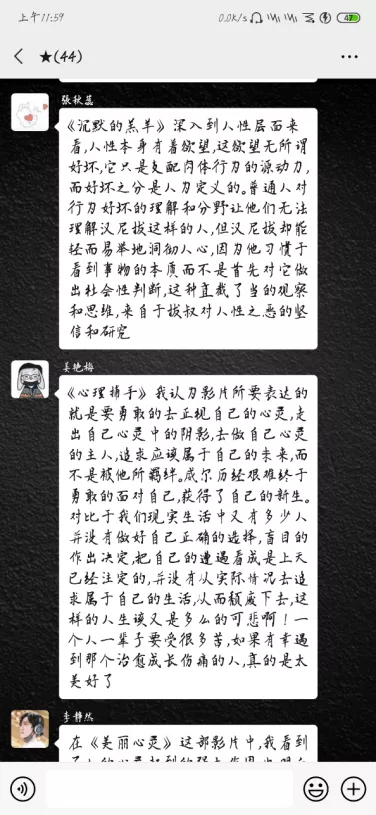 上午11:59
0.0K/s
47
★(44)
张秋蕊
《沉默的羔羊》深入到人性层面来
看,人性本身有着欲望,这欲望无所谓
好坏,它只是支配肉体行为的源动力,
而好坏之分是人为定义的。普通人对
行为好坏的理解和分野让他们无法
理解汉尼拔这样的人,但汉尼拔却能
轻而易举地洞彻人心,因为他习惯于
看到事物的本质而不是首先对它做
出社会性判断,这种直截了当的观察
和思维,来自于拔叔对人性之恶的坚
信和研究
吴艳梅
《心理捕手》我认为影片所要表达的
就是要勇敢的去正视自己的心灵,走
出自己心灵中的阴影,去做自己心灵
的主人,追求应该属于自己的未来,而
不是被他所羁绊。威尔历经艰难终于
勇敢的面对自己,获得了自己的新生。
对比于我们现实生活中又有多少人
并没有做好自己正确的选择,盲目的
作出决定,把自己的遭遇看成是上天
已经注定的,并没有从实际情况去追
求属于自己的生活,从而颓废下去,这
样的人生该又是多么的可悲啊！一
个人一辈子要受很多苦,如果有幸遇
到那个治愈成长伤痛的人,真的是太
美好了
李静然
在《美丽心灵》这部影片中,我看到